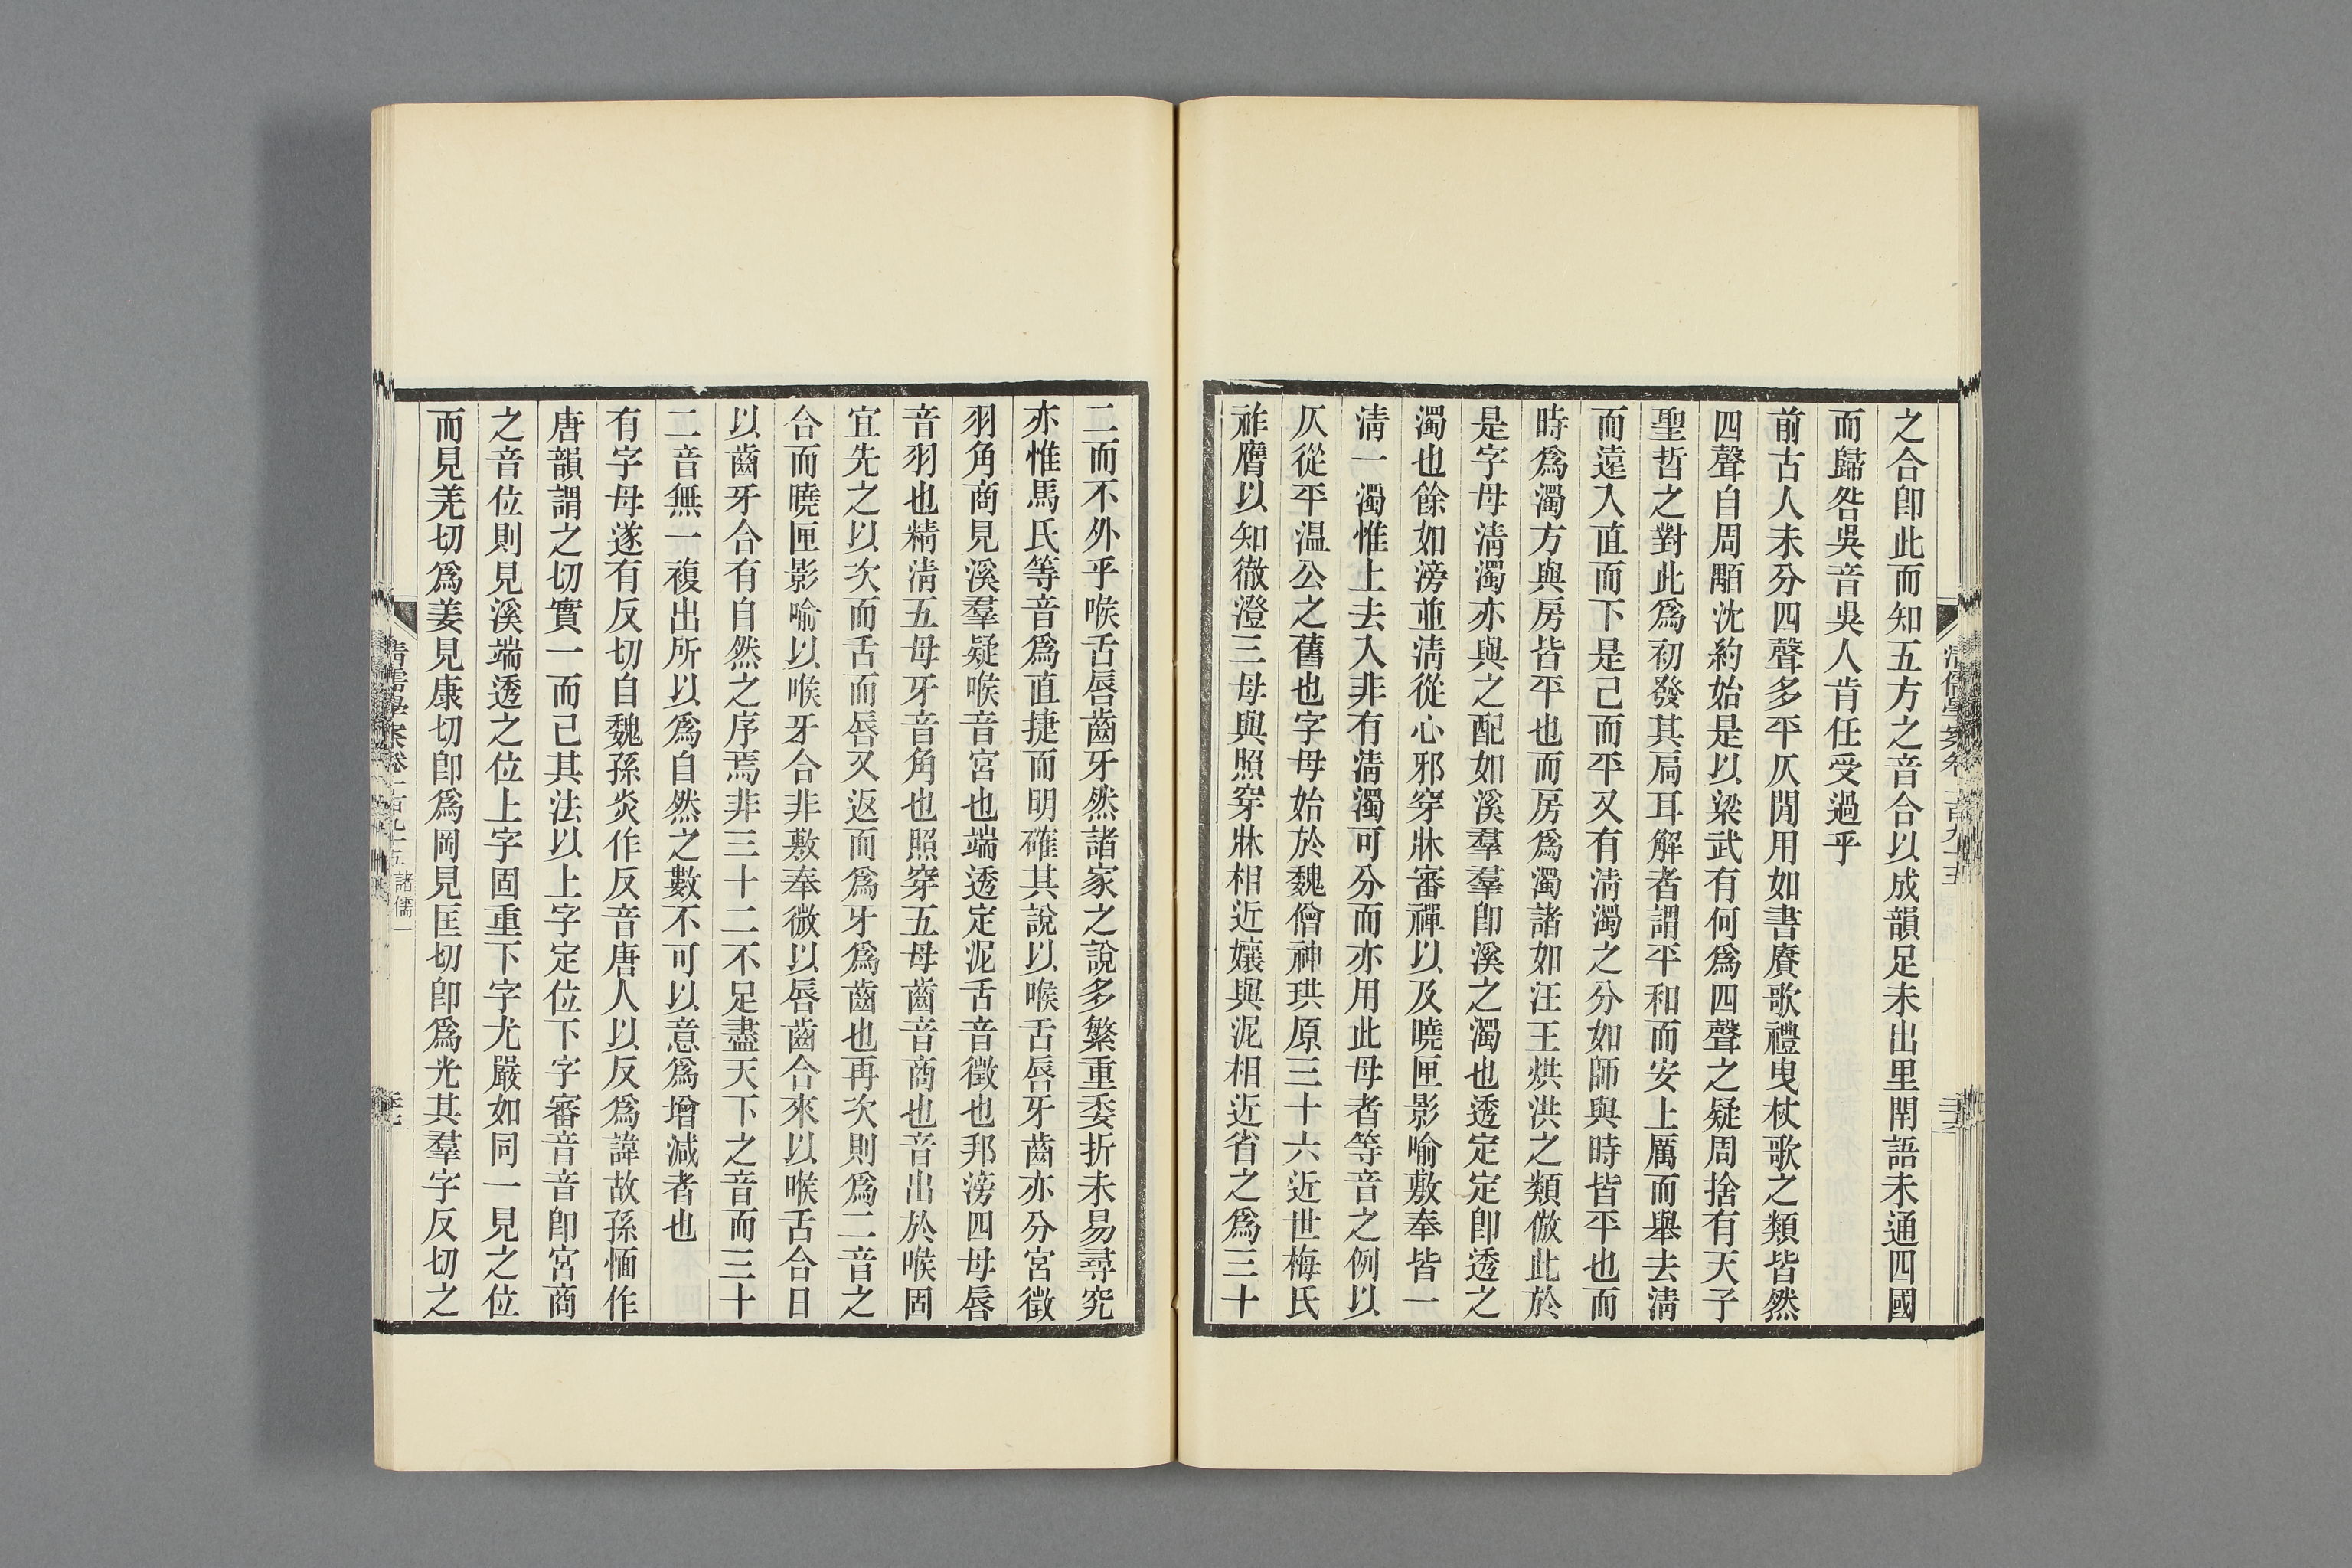 之合卽此而知五方之音合以成韻足未出里閈語未通四國
而歸咎吳音吳人肯任受過乎
前古人未分四聲多平仄閒用如書賡歌禮曳杖歌之類皆然
四聲自周顒沈約始是以梁武有何爲四聲之疑周捨有天子
聖哲之對此爲初發其扃耳解者謂平和而安上厲而舉去淸
而遠入直而下是已而平又有淸濁之分如師與時皆平也而
時爲濁方與房皆平也而房爲濁諸如汪王烘洪之類倣此於
是字母淸濁亦與之配如溪羣羣卽溪之濁也透定定卽透之
濁也餘如滂並淸從心邪穿牀審禪以及曉匣影喻敷奉皆一
淸一濁惟上去入非有淸濁可分而亦用此母者等音之例以
仄從平温公之舊也字母始於魏僧神珙原三十六近世梅氏
祚膺以知徹澄三母與照穿牀相近孃與泥相近省之爲三十
二而不外乎喉舌唇齒牙然諸家之說多繁重委折未易尋究
亦惟馬氏等音爲直捷而明確其說以喉舌唇牙齒亦分宮徵
羽角商見溪羣疑喉音宮也端透定泥舌音徵也邦滂四母唇
音羽也精淸五母牙音角也照穿五母齒音商也音出於喉固
宜先之以次而舌而唇又返而爲牙爲齒也再次則爲二音之
合而曉匣影喻以喉牙合非敷奉微以唇齒合來以喉舌合日
以齒牙合有自然之序焉非三十二不足盡天下之音而三十
二音無一複出所以爲自然之數不可以意爲增減者也
有字母遂有反切自魏孫炎作反音唐人以反爲諱故孫愐作
唐韻謂之切實一而已其法以上字定位下字審音音卽宮商
之音位則見溪端透之位上字固重下字尤嚴如同一見之位
而見羌切爲姜見康切卽爲岡見匡切卽爲光其羣字反切之
清儒學案卷一百九十五 諸儒一